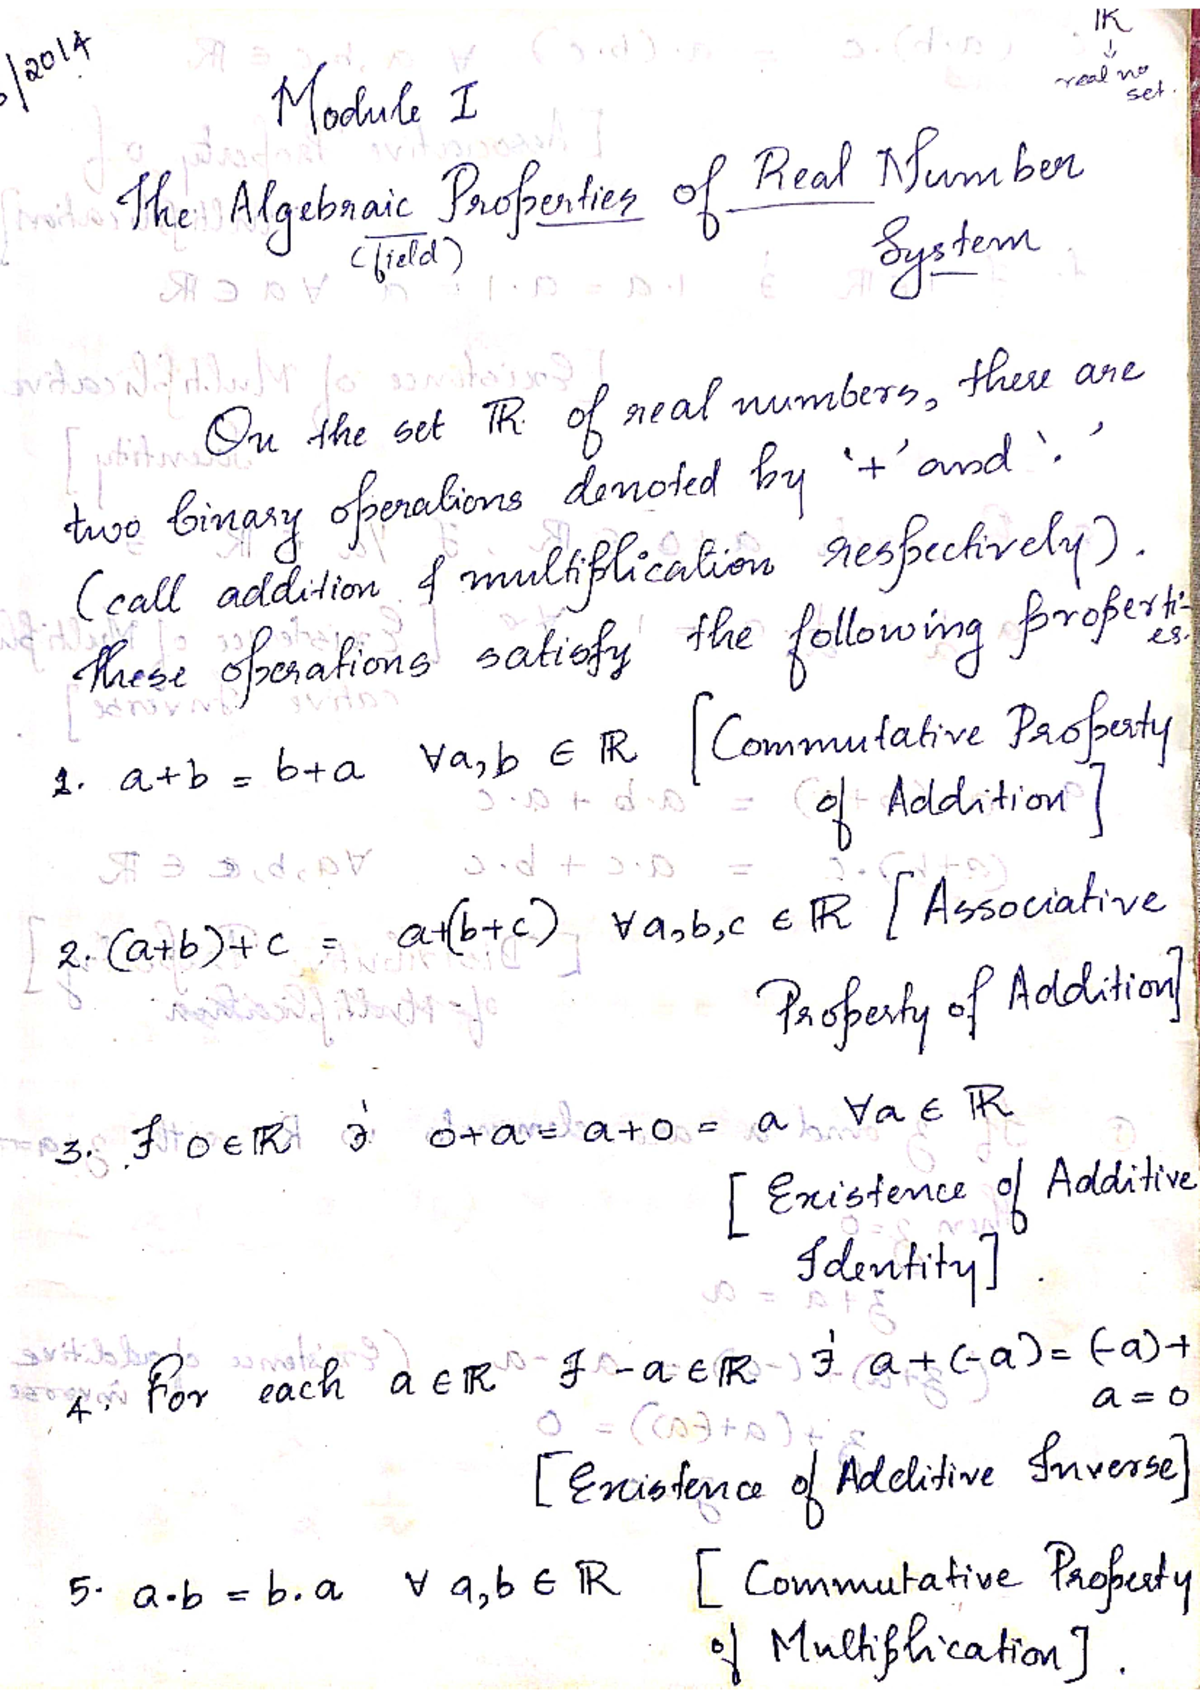 /2014
IR
↓
real no
set.
Module I
The Algebraic Properties of Real Number
(field)
System
On the set ℝ of real numbers, there are
two binary operations denoted by '+' and '.'
(call addition & multiplication respectively).
These operations satisfy the following properti-
es.
1. a+b = b+a ∀a,b ∈ ℝ [Commutative Property
of Addition]
2. (a+b)+c = a+(b+c) ∀a,b,c ∈ ℝ [Associative
Property of Addition]
3. ∃ 0∈ℝ ∋ 0+a = a+0 = a ∀a ∈ ℝ
[Existence of Additive
Identity].
4. For each a∈ℝ ∃ -a∈ℝ ∋ a+(-a) = (-a)+
a=0
[Existence of Additive Inverse]
5. a.b = b.a ∀ a,b ∈ ℝ [Commutative Property
of Multiplication].